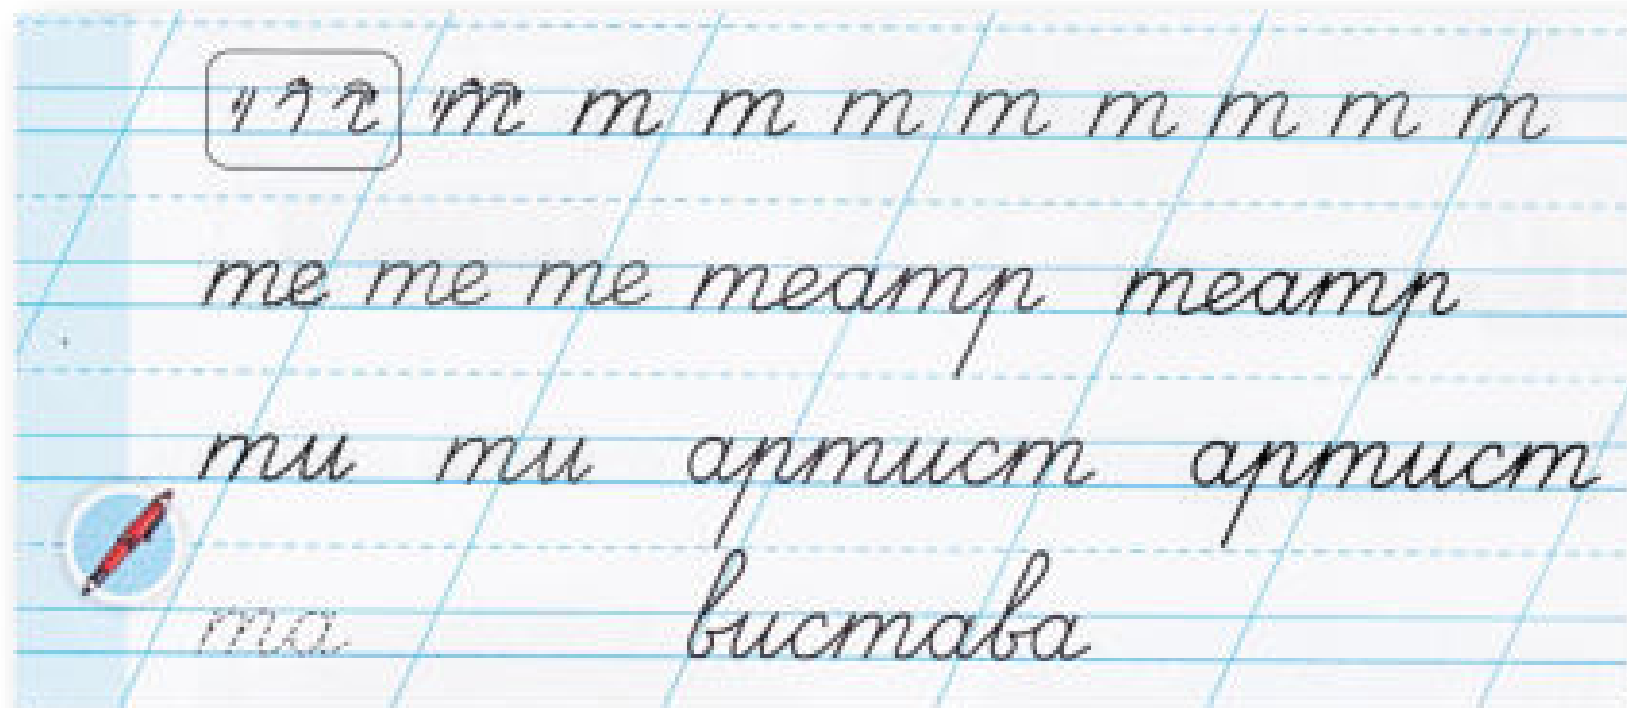 т т т т т т т т т
те те те театр театр
ти ти артист артист
та вистава